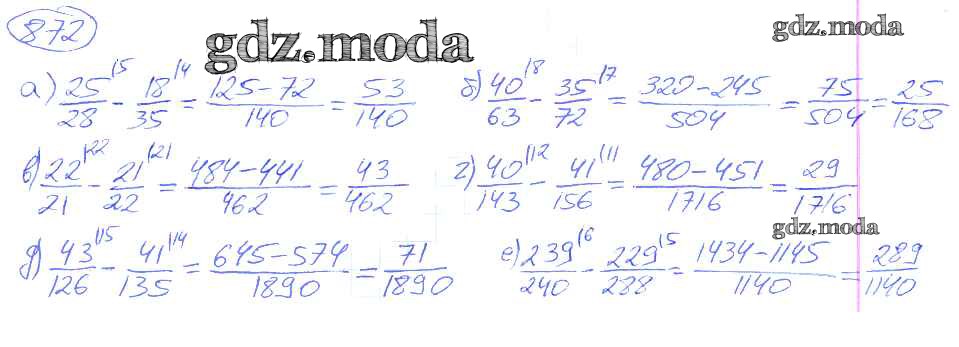 872
gdz.moda
gdz.moda
а) 25/28 |5 - 18/35 |4 = 125-72/140 = 53/140
б) 40/63 |8 - 35/72 |7 = 320-245/504 = 75/504 = 25/168
в) 22/21 |22 - 21/22 |21 = 484-441/462 = 43/462
г) 40/143 |12 - 41/156 |11 = 480-451/1716 = 29/1716
gdz.moda
д) 43/126 |15 - 41/135 |14 = 645-574/1890 = 71/1890
е) 239/240 |6 - 229/288 |5 = 1434-1145/1140 = 289/1140